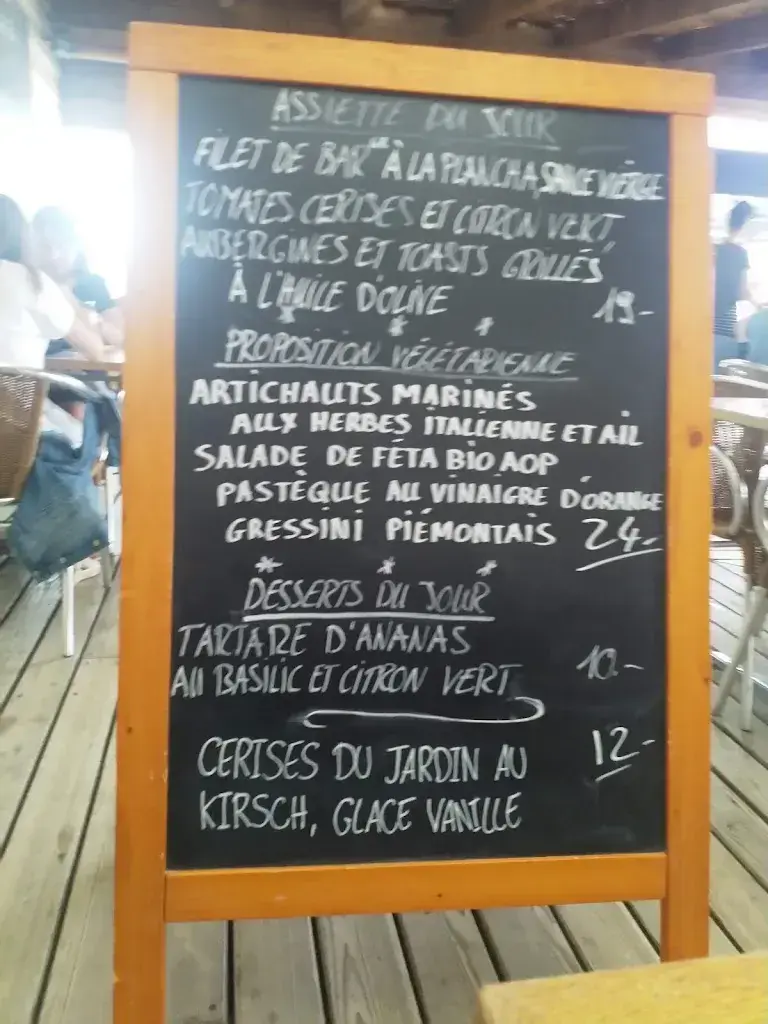 ASSIETTE DU JOUR
FILET DE BAR À LA PLANCHA, SAUCE VIERGE
TOMATES CERISES ET CITRON VERT,
AUBERGINES ET TOASTS GRILLÉS
À L'HUILE D'OLIVE 19.-
* * *
PROPOSITION VÉGÉTARIENNE
ARTICHAUTS MARINÉS
AUX HERBES ITALIENNE ET AIL
SALADE DE FÉTA BIO AOP
PASTÈQUE AU VINAIGRE D'ORANGE
GRESSINI PIÉMONTAIS 24.-
* * *
DESSERTS DU JOUR
TARTARE D'ANANAS
AU BASILIC ET CITRON VERT 10.-
CERISES DU JARDIN AU 12.-
KIRSCH, GLACE VANILLE